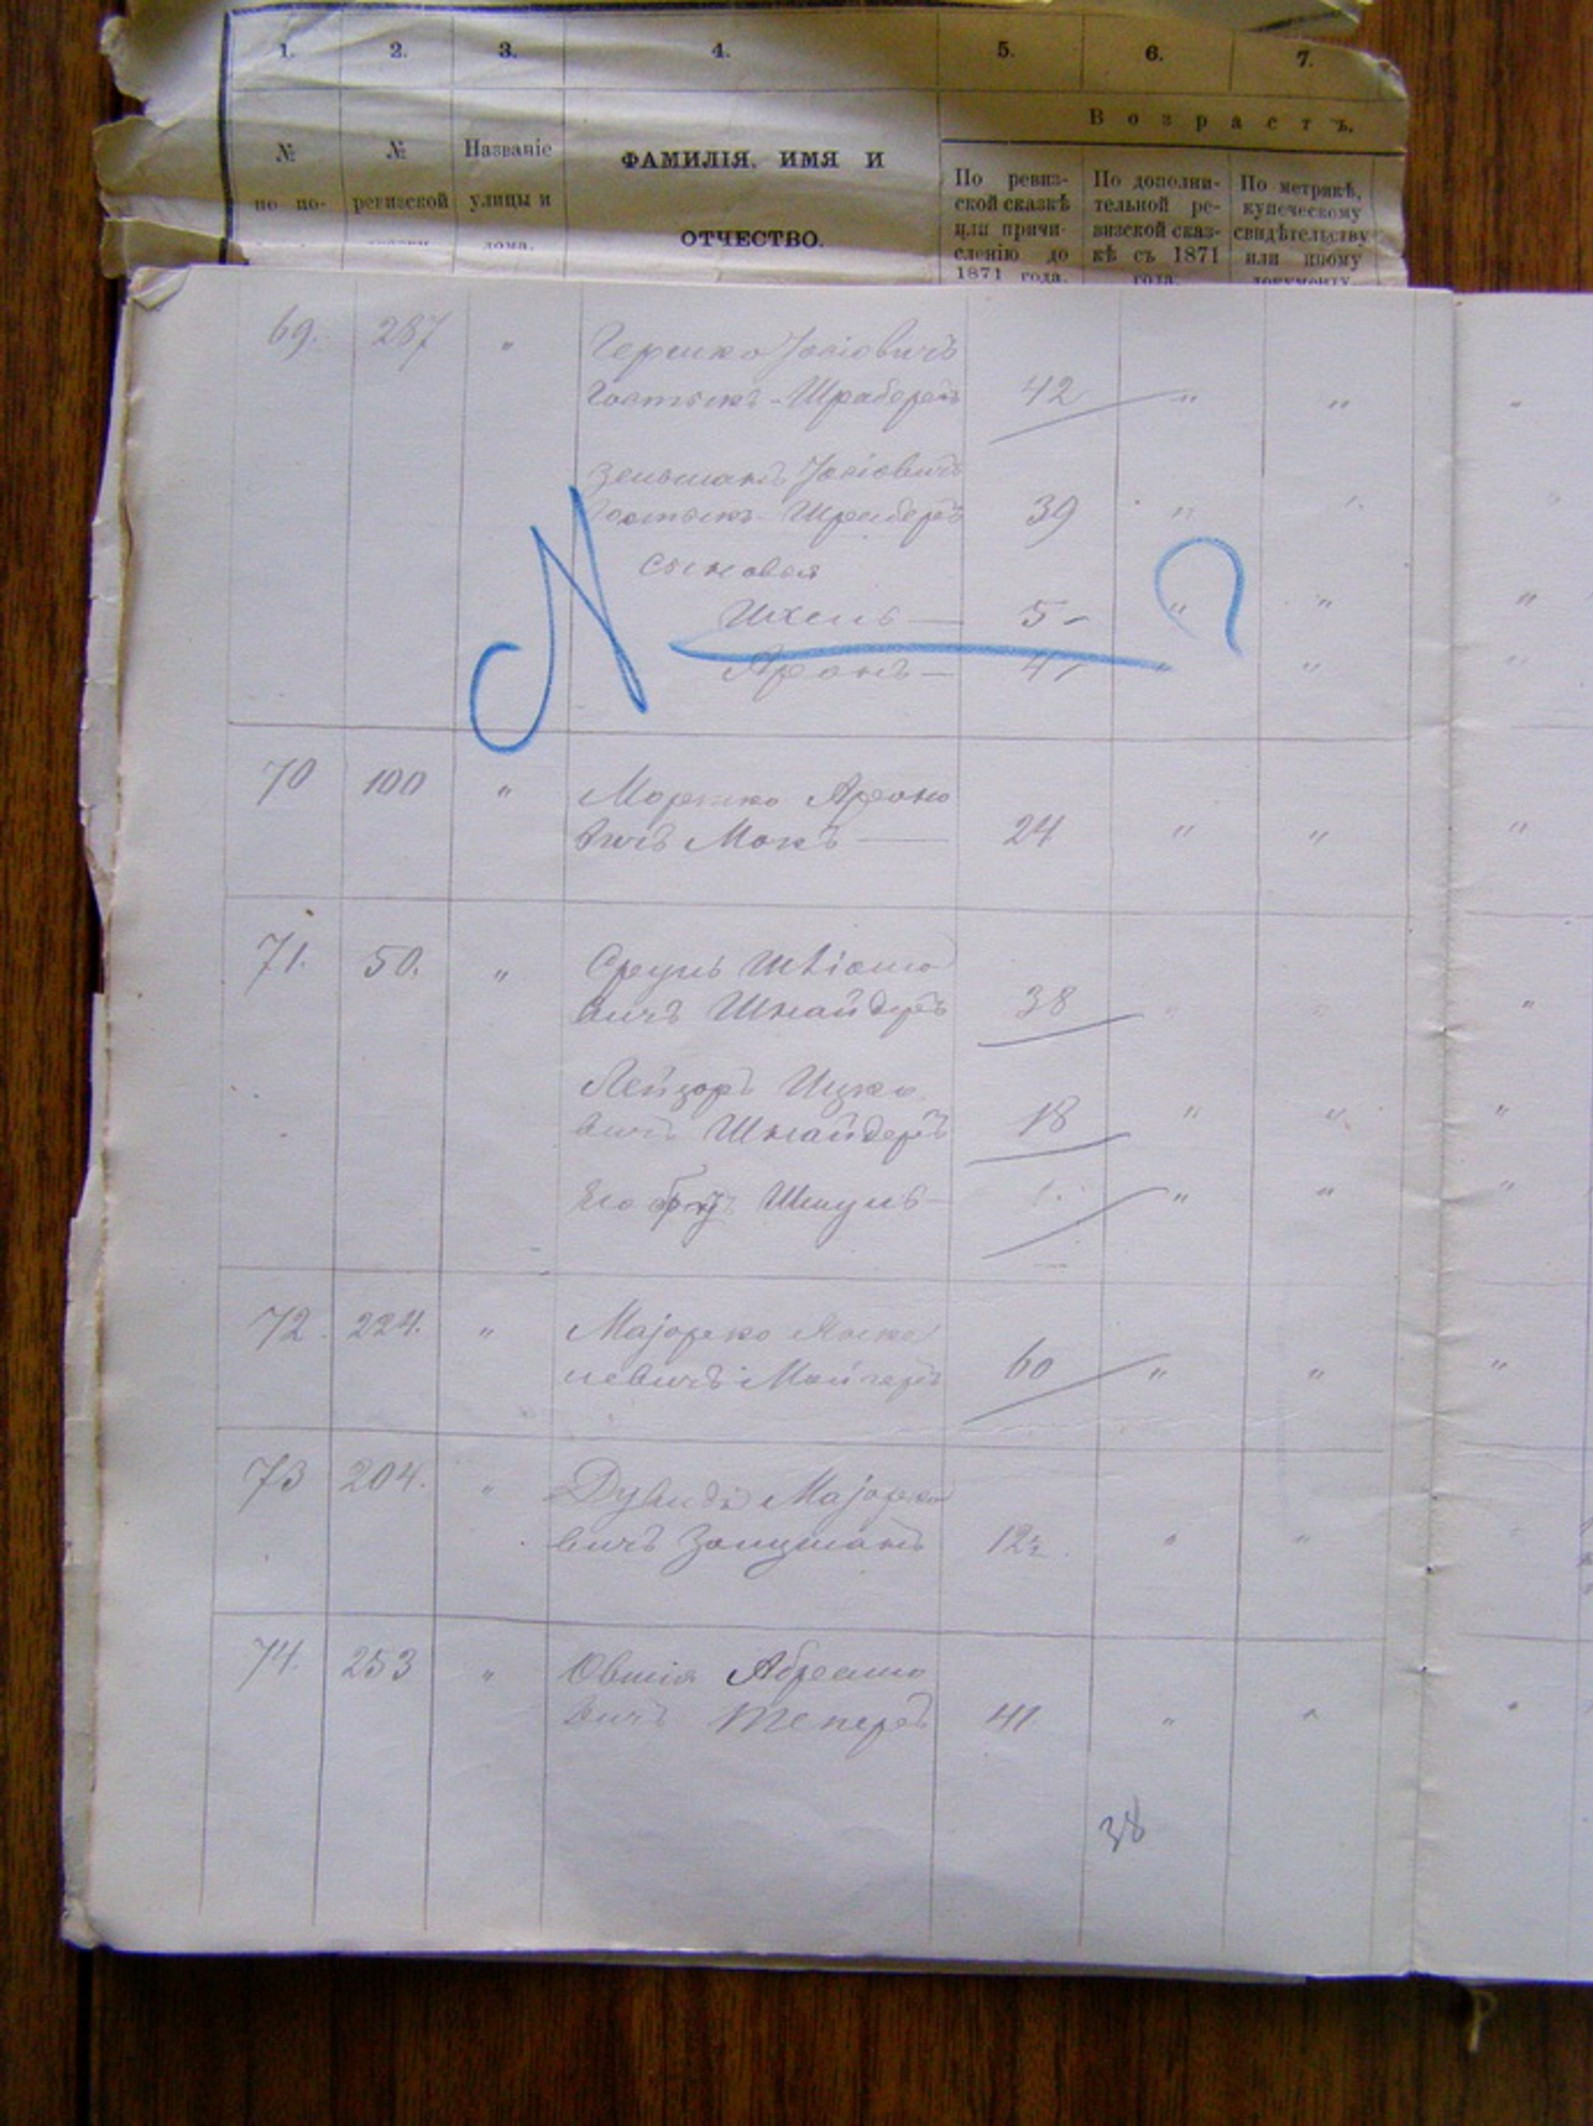 1. 2. 3. 4. 5. 6. 7.
Возрастъ.
№ по по-
№ ревизской
Названіе улицы и дома.
ФАМИЛІЯ, ИМЯ И
ОТЧЕСТВО.
По ревиз-
ской сказкѣ
или причи-
сленію до
1871 года.
По дополни-
тельной ре-
визской сказ-
кѣ съ 1871
года.
По метрикѣ,
купеческому
свидѣтельству
или иному
документу.
69. 287 " Гершко Іосіовичъ
42 " " "
Зельманъ Іосіовичъ
39 " "
сыновья
5 " " "
Аронъ — 4 " " "
70 100 " Мортко Ароно
вичъ Мокъ — 24 " " "
71. 50. " Сруль
вичъ Шнайдеръ 38 " " "
Лейзоръ Ицко
вичъ Шнайдеръ 18 " " "
Его Шмуль — " " "
72. 224. " Маjорко Янке
левичъ 60 " " "
73 204. " Дувидъ Маjорко
вичъ Зальцманъ 12½ " "
74. 253 " Овшія Абрамо
вичъ Теперъ 41 " " "
38